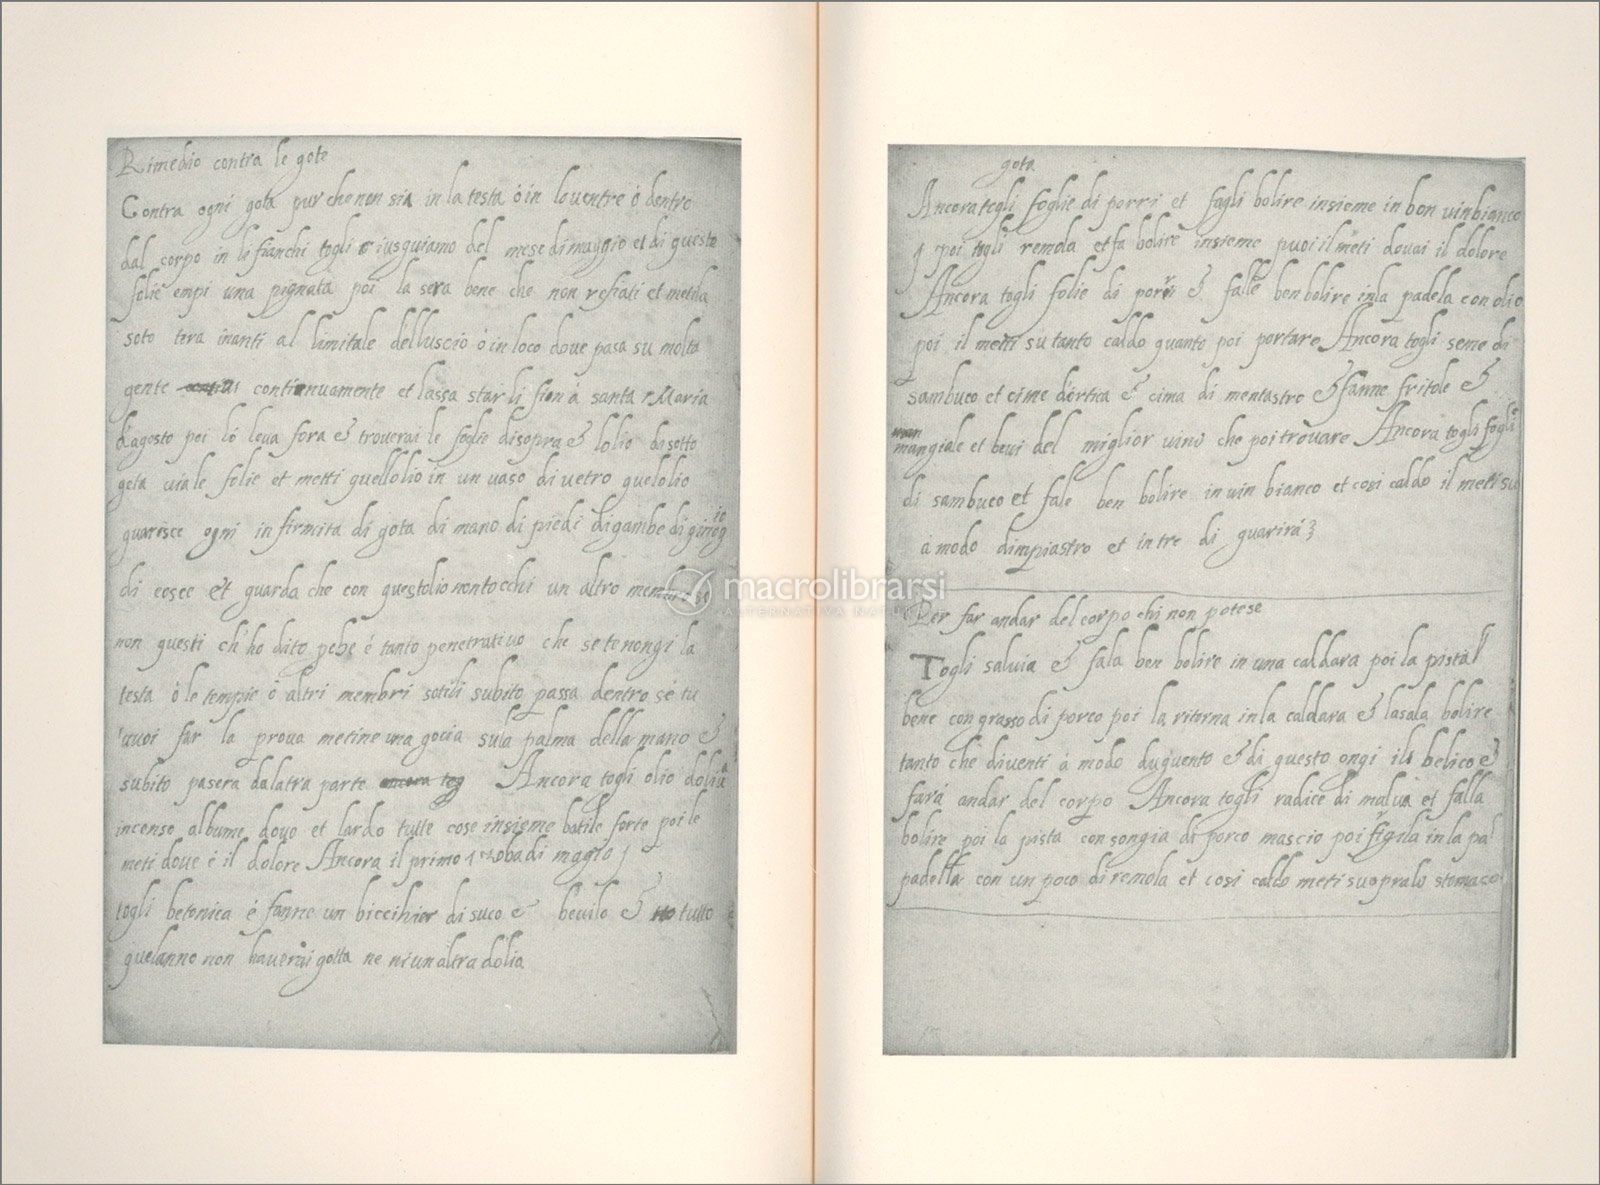 Rimedio contra le gote
Contra ogni gota pur che non sia in la testa ò in lo ventre ò dentro
dal corpo in li fianchi togli iusquiamo del mese di maggio et di queste
folie empi una pignata poi la sera bene che non refiati et metila
soto tera inanti al limitale delluscio ò in loco dove pasa su molta
gente continuamente et lassa star li fion à santa Maria
dagosto poi lò leva fora & troverai le foglie disopra & lolio disotto
geta via le folie et metti quellolio in un vaso di vetro quelolio
guarisce ogni infirmita di gota di mano di piedi di gambe di
di cosce et guarda che con questolio non tocchi un altro membro se
non questi ch'ho dito pche è tanto penetrativo che se te nongi la
testa ò le tempie ò altri membri sotili subito passa dentro sé tu
vuoi far la prova metine una gocia sula palma della mano &
subito pasera dalatra parte Ancora togli olio doliva
incenso albume dovo et lardo tutte cose insieme batile forte poi le
meti dove è il dolore Ancora il primo di magio
togli betonica è fanne un bicchier di suco & bevilo & tutto
quelanno non haverai gotta ne niunaltra dolia
gota
Ancora togli foglie di porri et fogli bolire insieme in bon vin bianco
poi togli remola et fa bolire insieme puoi il meti dovai il dolore
Ancora togli folie di porri & falle ben bolire inla padela con olio
poi il metti su tanto caldo quanto poi portare Ancora togli seme di
sambuco et cime dortica & cima di mentastro & fanne fritole &
mangiale et bevi del miglior vino che poi trovare Ancora togli fogli
di sambuco et fale ben bolire in vin bianco et cosi caldo il meti su
à modo dimpiastro et in tre di guarirá
macrolibrarsi
ALTERNATIVA NATURA
Per far andar del corpo chi non potese
Togli salvia & fala ben bolire in una caldara poi la pista
bene con grasso di porco poi la ritorna inla caldara & lasala bolire
tanto chè diventi à modo duguento & di questo ongi il belico &
fará andar del corpo Ancora togli radice di malva et falla
bolire poi la pista con songia di porco mascio poi frigila inla pa
padella con un poco di remola et cosi caldo meti sopralo stomaco